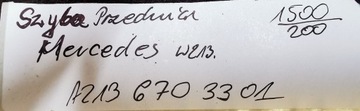 Szyba Przednia 1500/200
Mercedes W213.
A213 670 33 01